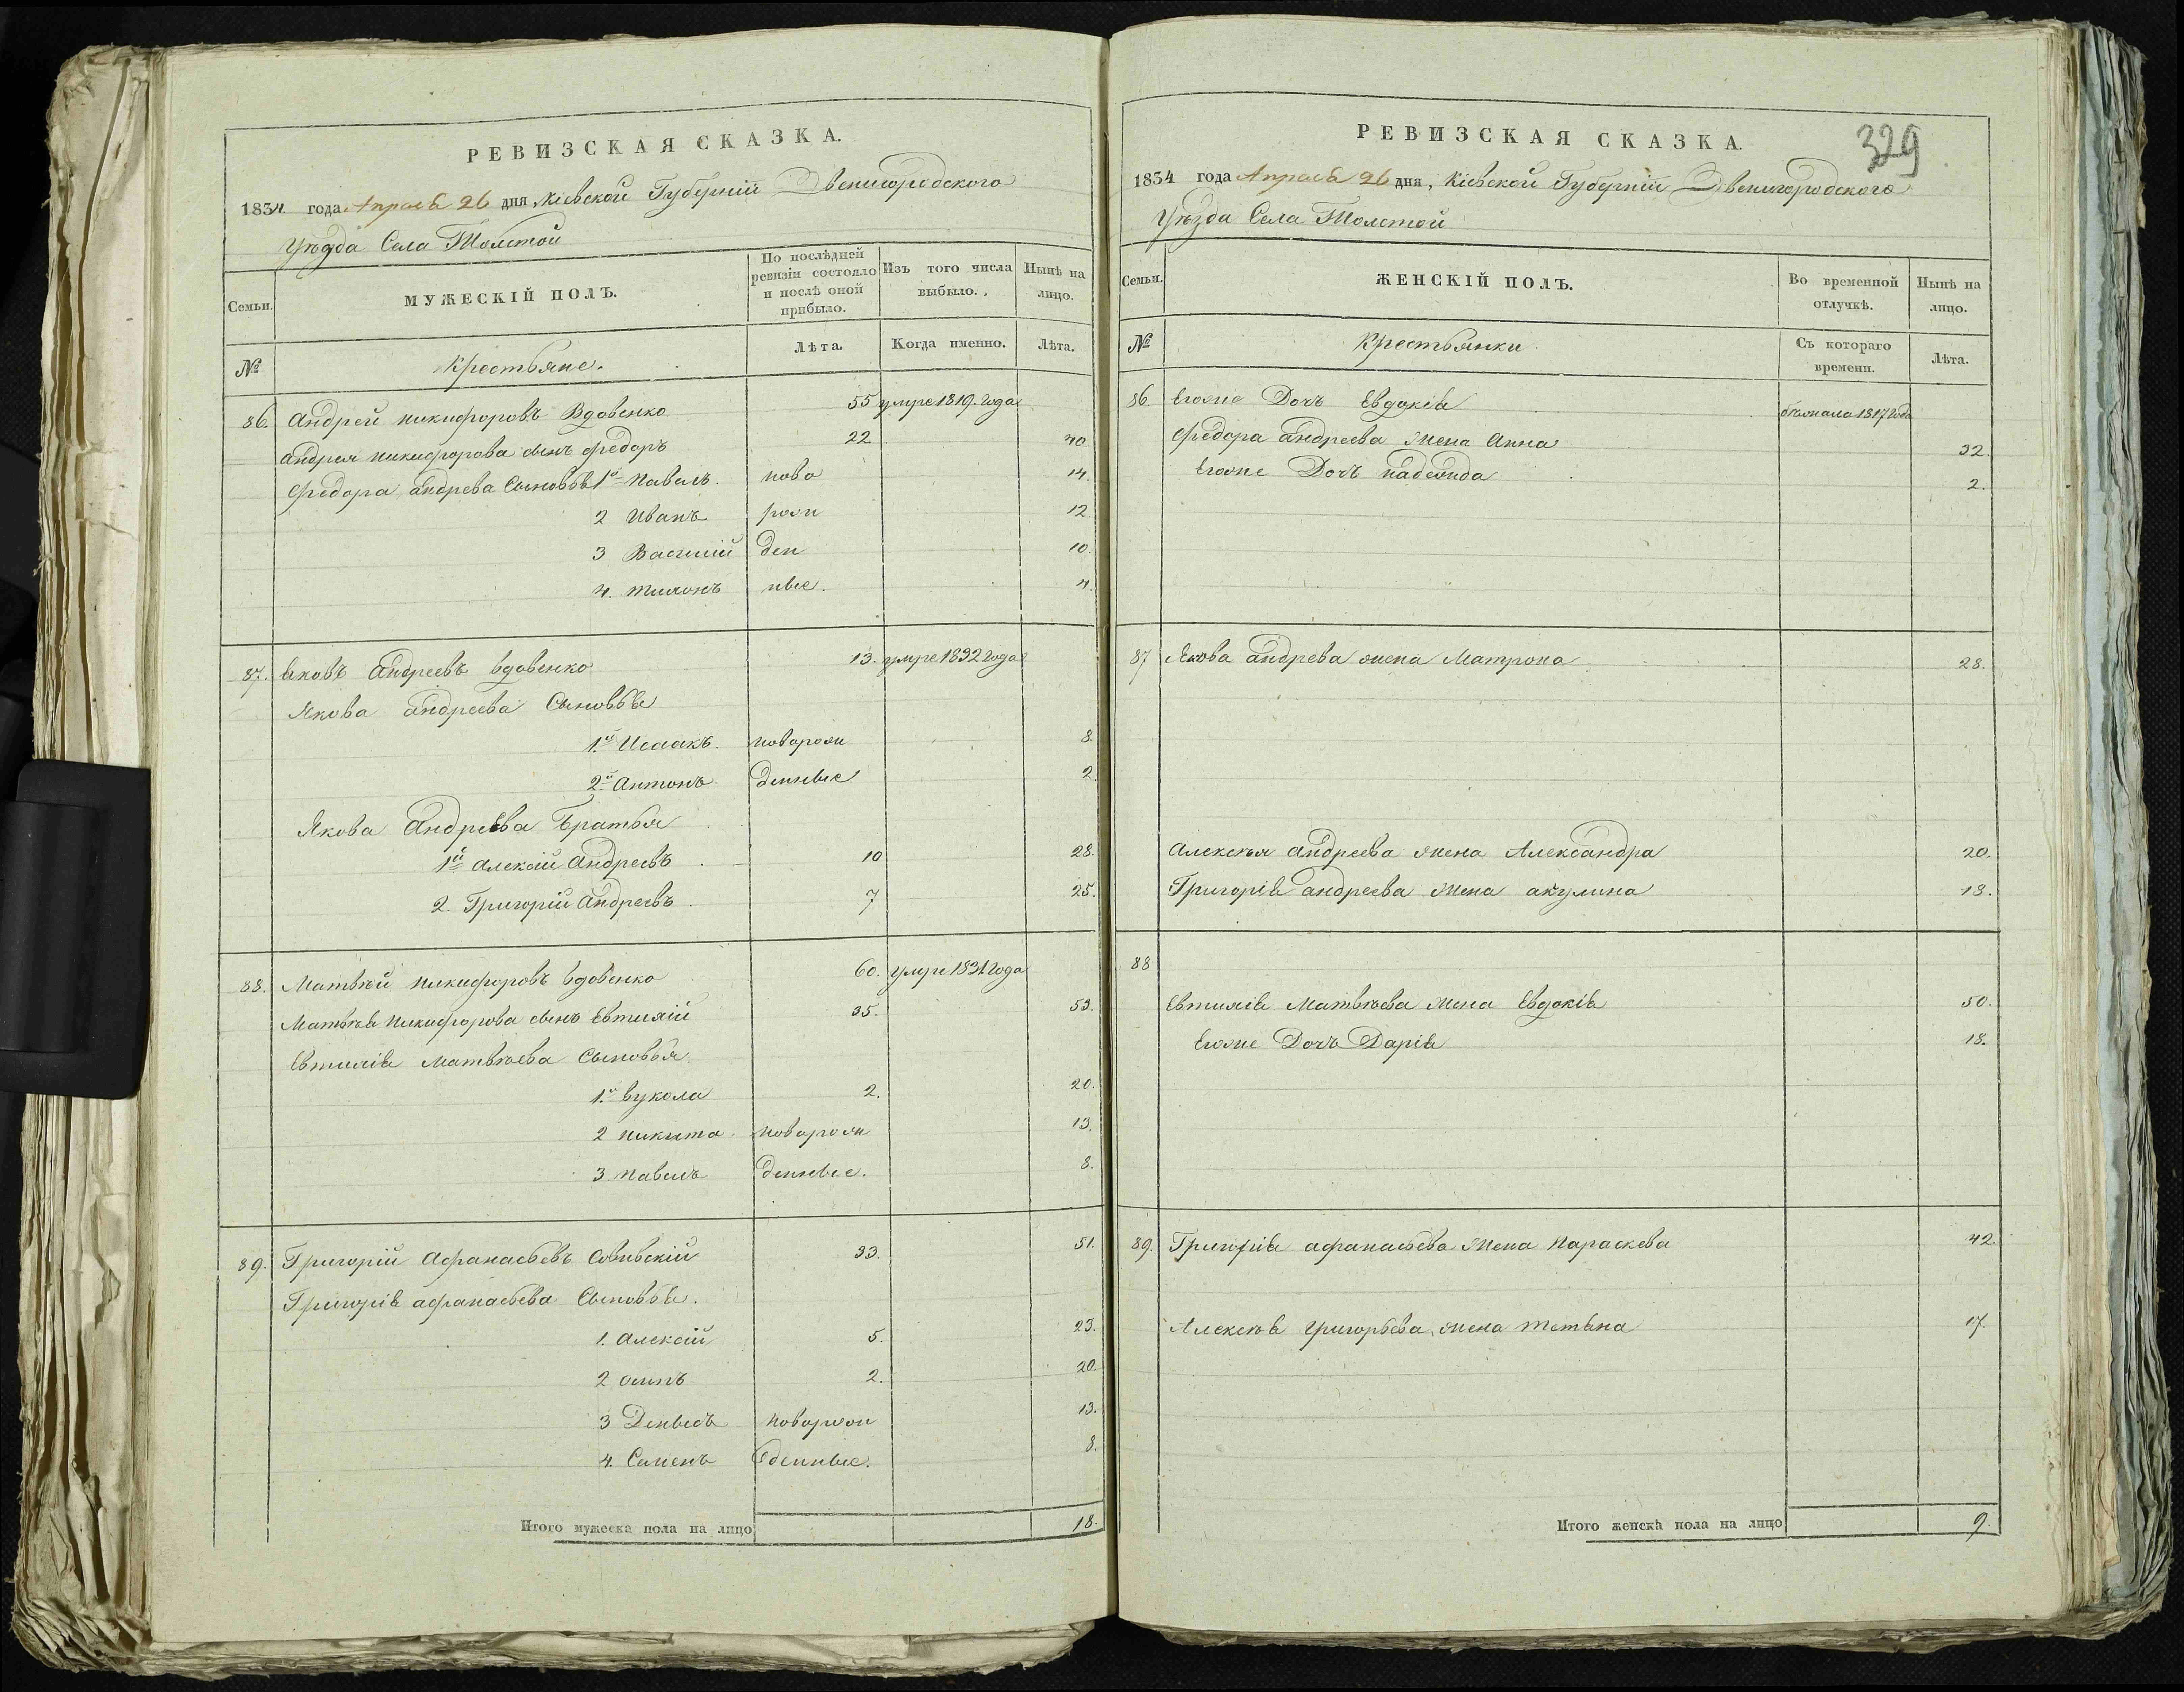 РЕВИЗСКАЯ СКАЗКА.
1834 года Апреля 26 дня, Кіевской Губерніи Звенигородского
Уѣзда Села Толстой
Семьи.
МУЖЕСКІЙ ПОЛЪ.
По послѣдней ревизіи состояло и послѣ оной прибыло.
Изъ того числа выбыло.
Нынѣ на лицо.
№
Крестьяне.
Лѣта.
Когда именно.
Лѣта.
86. Андрей Никифоровъ Вдовенко 55 умре 1819. года
Андрея Никифорова сынъ Федоръ 22 40
Федора Андрева Сыновья 1й Павелъ. ново 14.
2 Иванъ рож 12
3 Василій ден 10.
4. Тихонъ ные. 4.
87. Яковъ Андреевъ Вдовенко 13. умре 1832 года
Якова Андреева Сыновья
1й Исаакъ. новорож 8.
2й Антонъ денные 2
Якова Андреева Братья
1й Алексій Андреевъ 10 28.
2. Григорій Андреевъ 7 25.
88. Матвѣй Никифоровъ Вдовенко 60. умре 1831 года
Матвѣя Никифорова сынъ Евтихій 35. 53.
Евтихія Матвѣева Сыновья
1й Вукола 2. 20.
2 Никита новорож 13.
3. Павелъ денные. 8.
89. Григорій Афанасьевъ 33. 51.
Григорія Афанасьева Сыновья.
1. Алексій 5. 23.
2 Осипъ 2. 20.
3 Денысъ новорож 13.
4. Семенъ денные. 8.
Итого мужеска пола на лицо 18.
329
РЕВИЗСКАЯ СКАЗКА.
1834 года Апреля 26 дня, Кіевской Губерніи Звенигородского
Уѣзда Села Толстой
Семьи.
ЖЕНСКІЙ ПОЛЪ.
Во временной отлучкѣ.
Нынѣ на лицо.
№
Крестьянки
Съ котораго времени.
Лѣта.
86. Егоже Дочь Евдокія бѣжала 1817 года
Федора Андреева Жена Анна 32.
Егоже Дочь Надежда 2.
87 Якова Андрева жена Матрона 28.
Алексѣя Андреева жена Александра 20.
Григорія Андреева Жена Акулина 18.
88
Евтихія Матвѣева Жена Евдокія 50.
Егоже Дочь Дарія 18.
89. Григорія Афанасьева Жена Параскева 42.
Алексѣя Григорьева жена Татьяна 17.
Итого женска пола на лицо 9